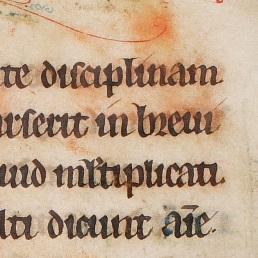 te disciplinam
rserit in breui
uid ml̄tiplicati.
lti dicunt aīe.